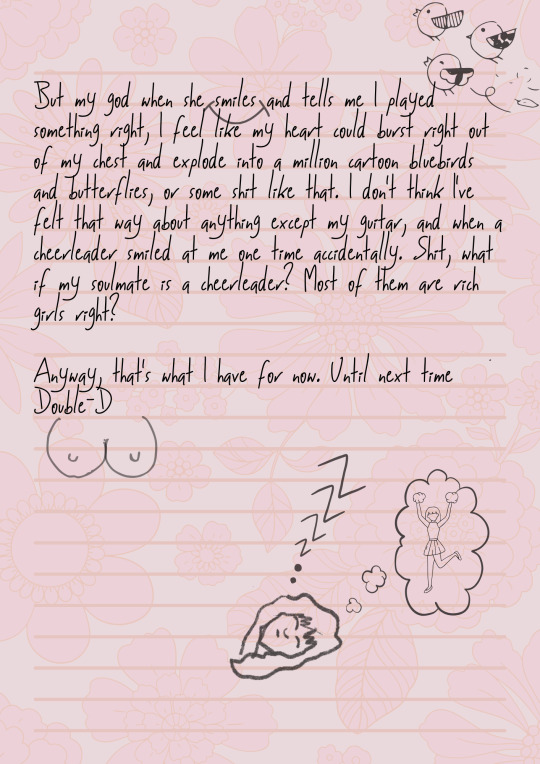 But my god when she smiles and tells me I played
something right, I feel like my heart could burst right out
of my chest and explode into a million cartoon bluebirds
and butterflies, or some shit like that. I don't think I've
felt that way about anything except my guitar, and when a
cheerleader smiled at me one time accidentally. Shit, what
if my soulmate is a cheerleader? Most of them are rich
girls right?
Anyway, that's what I have for now. Until next time
Double-D
Z
Z
Z
Z
Z